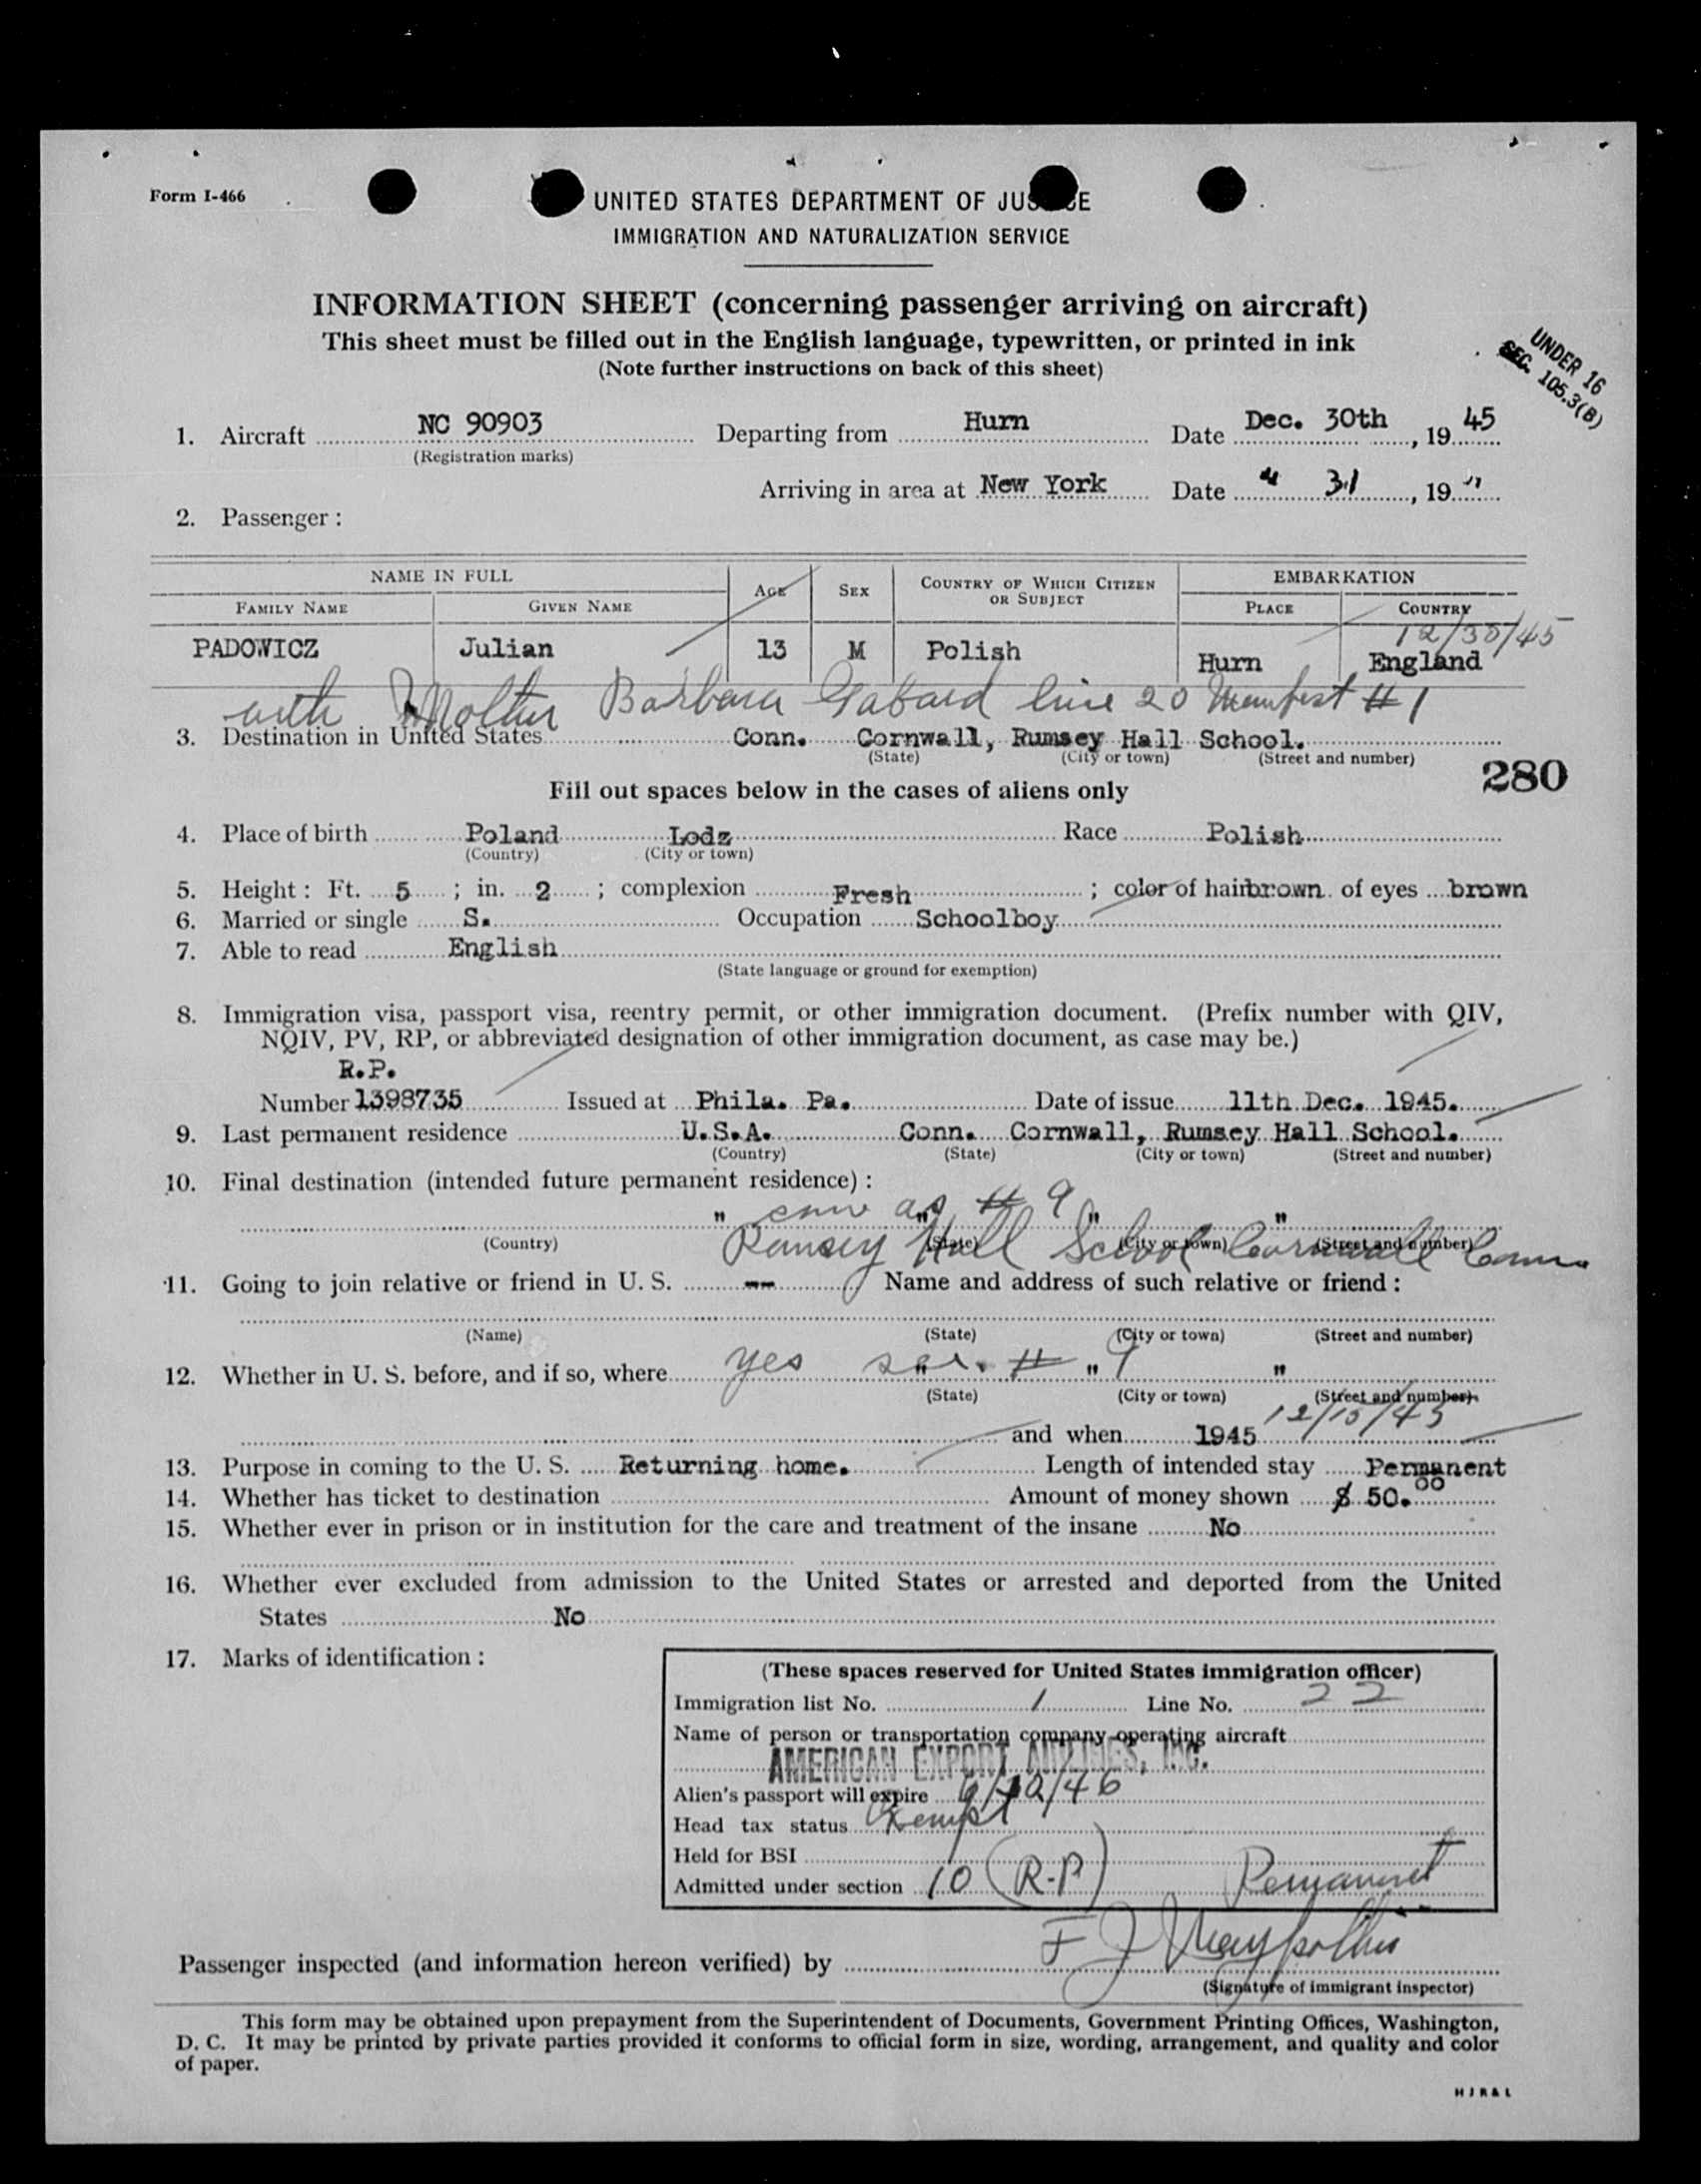 Form I-466
UNITED STATES DEPARTMENT OF JUSTICE
IMMIGRATION AND NATURALIZATION SERVICE
INFORMATION SHEET (concerning passenger arriving on aircraft)
This sheet must be filled out in the English language, typewritten, or printed in ink
(Note further instructions on back of this sheet)
UNDER 16
SEC. 105.3(B)
1. Aircraft NC 90903 Departing from Hurn Date Dec. 30th, 1945
(Registration marks)
Arriving in area at New York Date " 31, 19 "
2. Passenger:
NAME IN FULL AGE SEX COUNTRY OF WHICH CITIZEN OR SUBJECT EMBARKATION
FAMILY NAME GIVEN NAME PLACE COUNTRY
12/30/45
PADOWICZ Julian 13 M Polish Hurn England
with Mother Barbara Gabard line 20 Manifest # 1
3. Destination in United States Conn. Cornwall, Rumsey Hall School.
(State) (City or town) (Street and number)
280
Fill out spaces below in the cases of aliens only
4. Place of birth Poland Lodz Race Polish
(Country) (City or town)
5. Height: Ft. 5; in. 2; complexion Fresh; color of hair brown of eyes brown
6. Married or single S. Occupation Schoolboy
7. Able to read English
(State language or ground for exemption)
8. Immigration visa, passport visa, reentry permit, or other immigration document. (Prefix number with QIV,
NQIV, PV, RP, or abbreviated designation of other immigration document, as case may be.)
R.P.
Number 1398735 Issued at Phila. Pa. Date of issue 11th Dec. 1945.
9. Last permanent residence U.S.A. Conn. Cornwall, Rumsey Hall School.
(Country) (State) (City or town) (Street and number)
10. Final destination (intended future permanent residence):
" as " # 9 " "
(Country) (State) (City or town) (Street and number)
Rumsey Hall School Cornwall Conn.
11. Going to join relative or friend in U. S. -- Name and address of such relative or friend:
(Name) (State) (City or town) (Street and number)
12. Whether in U. S. before, and if so, where yes " # " 9 "
(State) (City or town) (Street and number)
12/15/45
and when 1945
13. Purpose in coming to the U. S. Returning home. Length of intended stay Permanent
14. Whether has ticket to destination Amount of money shown $ 50.00
15. Whether ever in prison or in institution for the care and treatment of the insane No
16. Whether ever excluded from admission to the United States or arrested and deported from the United
States No
17. Marks of identification:
(These spaces reserved for United States immigration officer)
Immigration list No. 1 Line No. 22
Name of person or transportation company operating aircraft
AMERICAN EXPORT AIRLINES, INC.
Alien's passport will expire
Head tax status Exempt
Held for BSI
Admitted under section 10 (R-P) Permanent
Passenger inspected (and information hereon verified) by F J
(Signature of immigrant inspector)
This form may be obtained upon prepayment from the Superintendent of Documents, Government Printing Offices, Washington,
D. C. It may be printed by private parties provided it conforms to official form in size, wording, arrangement, and quality and color
of paper.
H J R & L